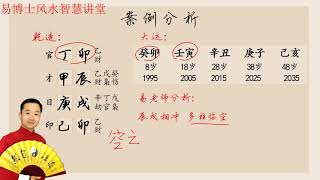 易博士风水智慧讲堂
案例分析
乾造：
大运：
官 丁 卯 乙财
才 甲 辰 乙戊癸 财枭伤
日 庚 戌 辛丁戊 劫官枭
印 己 卯 乙财
癸卯 壬寅 辛丑 庚子 己亥
8岁 18岁 28岁 38岁 48岁
1995 2005 2015 2025 2035
易老师分析：
辰戌相冲 多柱临空
空亡